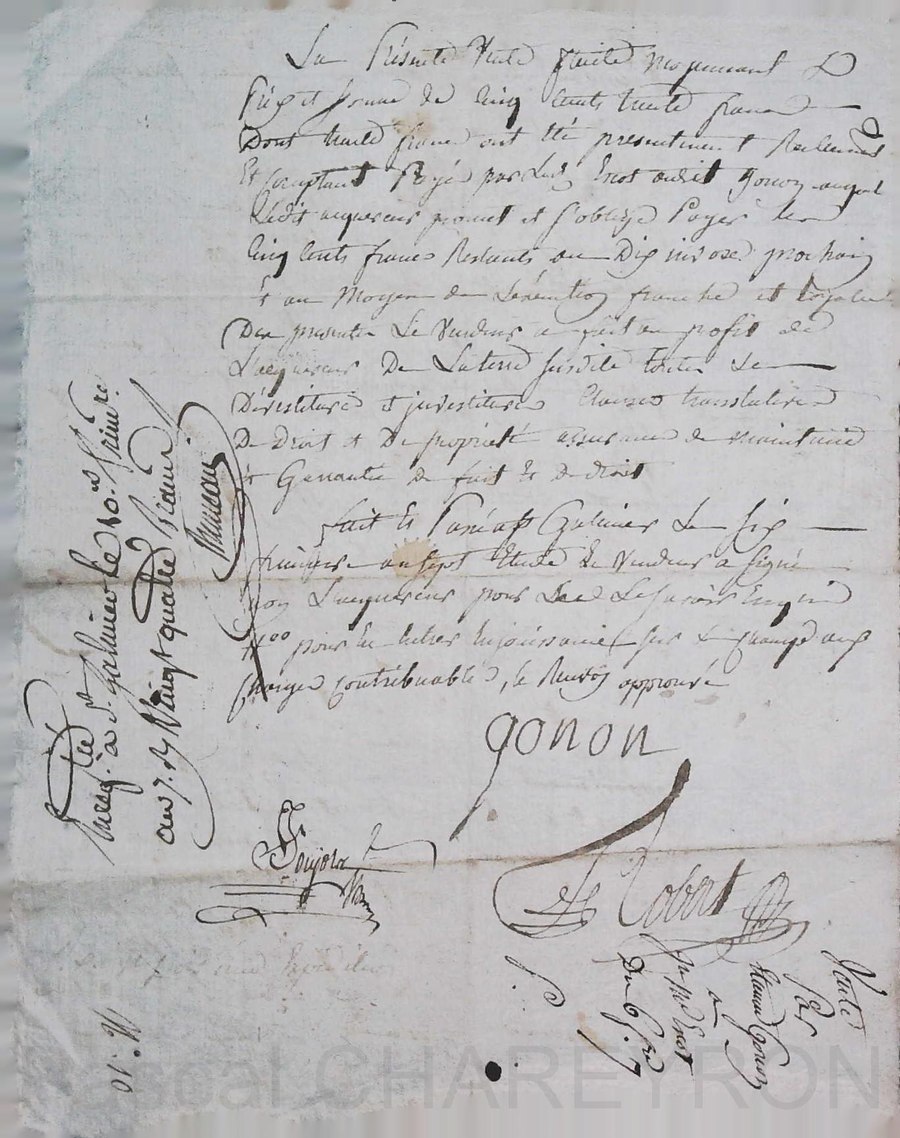 La Présente Vente faite moyennant le
Prix et somme de cinq cents trente francs
Dont trente francs ont été présentement Réellement
Et comptant Payé par led. Erost audit gonon auquel
Ledit acquereur promet et s'oblige Payer les
cinq cents francs Restants au Dix nivose prochain
& au Moyen de Lexécution franche et loyale
Des presentes Le Vendeur a fait au profit de
L'acquereur De La terre susdite toutes les
Dévestitures et investitures Clauses translatives
De Droit et De propriété assurance de maintenue
& Garantie de fait & De droit
fait & Passé à st Galmier Le six
frimaire an sept Lecture Le Vendeur a signé
non L'acquereur pour ne Le savoir Enquis
pour en entrer en jouissance sur le champ aux
charges contribuables, le Renvoy approuvé
gonon
Robert
Enreg. à St. Galmier le 10. frim.re
an 7. Vingt quatre
Vente
Par
Gonon
à
Erost
Du 6 f.re 7
N. 10
Pascal CHAREYRON